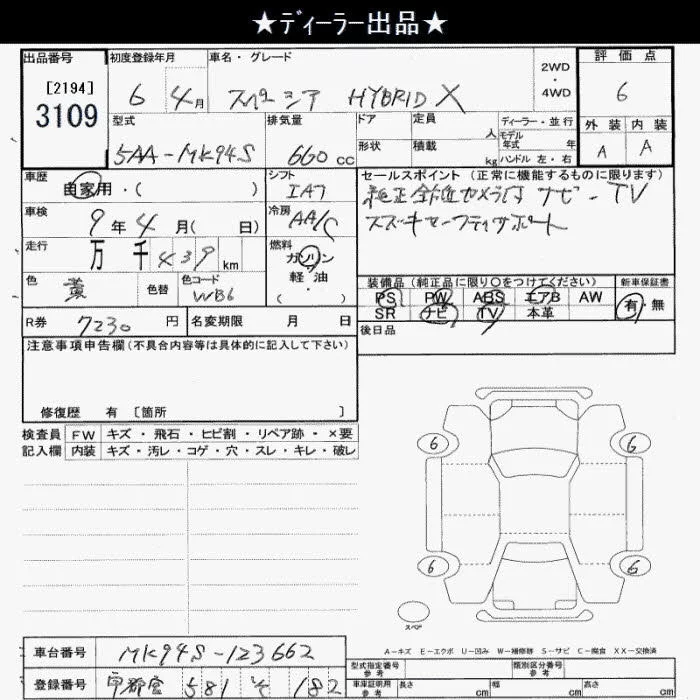 ★ディーラー出品★
出品番号 初度登録年月 車名・グレード 評価点
[2194]
3109
6 4月 スペーシア HYBRID X
2WD
・
4WD
6
外装 内装
A A
型式 排気量 ドア 定員 人 ディーラー・並行
モデル年式 年
5AA-MK94S 660cc 形状 積載 kg ハンドル 左・右
車歴 自家用・( )
シフト
IA7
セールスポイント(正常に機能するものに限ります)
純正 カメラ付 ナビ-TV
スズキセーフティサポート
車検 9年4月( 日)
冷房 AA/C
走行 万千439km
燃料
ガソリン
軽油
・
( )
色 黄 色替 色コード
WB6
装備品(純正品に限り〇をつけてください) 新車保証書
PS PW ABS エアB AW 有・無
SR ナビ TV 本革
R券 7230円 名変期限 月 日
後日品
注意事項申告欄(不具合内容等は具体的に記入して下さい)
修復歴 有 〔箇所 〕
検査員 FW キズ・飛石・ヒビ割・リペア跡・×要
記入欄 内装 キズ・汚レ・コゲ・穴・スレ・キレ・破レ
6 6
6 6
スペア
A-キズ E-エクボ U-凹み W-補修跡 S-サビ C-腐食 XX-交換済
車台番号 MK94S-123662
型式指定番号
参考 類別区分番号
参考
登録番号 宇都宮 581 182
車庫証明用
参考 長さ cm 幅 cm 高さ cm